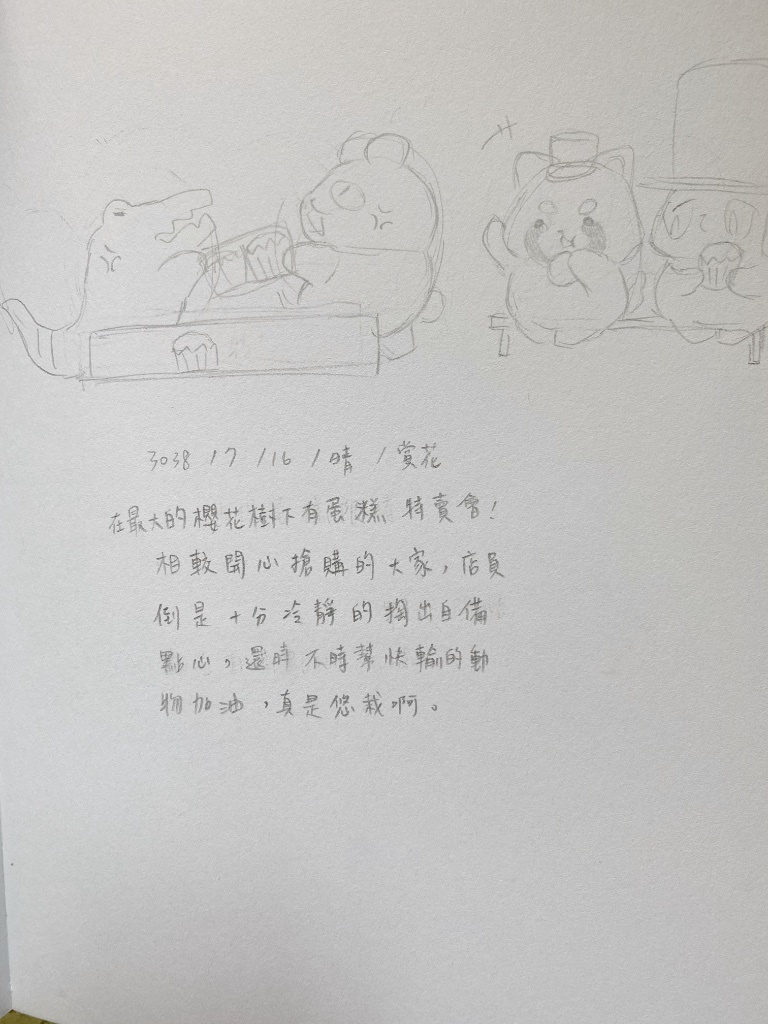 3038 / 7 / 16 / 晴 / 賞花
在最大的櫻花樹下有蛋糕特賣會!
相較開心搶購的大家,店員
倒是十分冷靜的掏出自備
點心,還時不時幫快輸的動
物加油,真是悠哉啊。